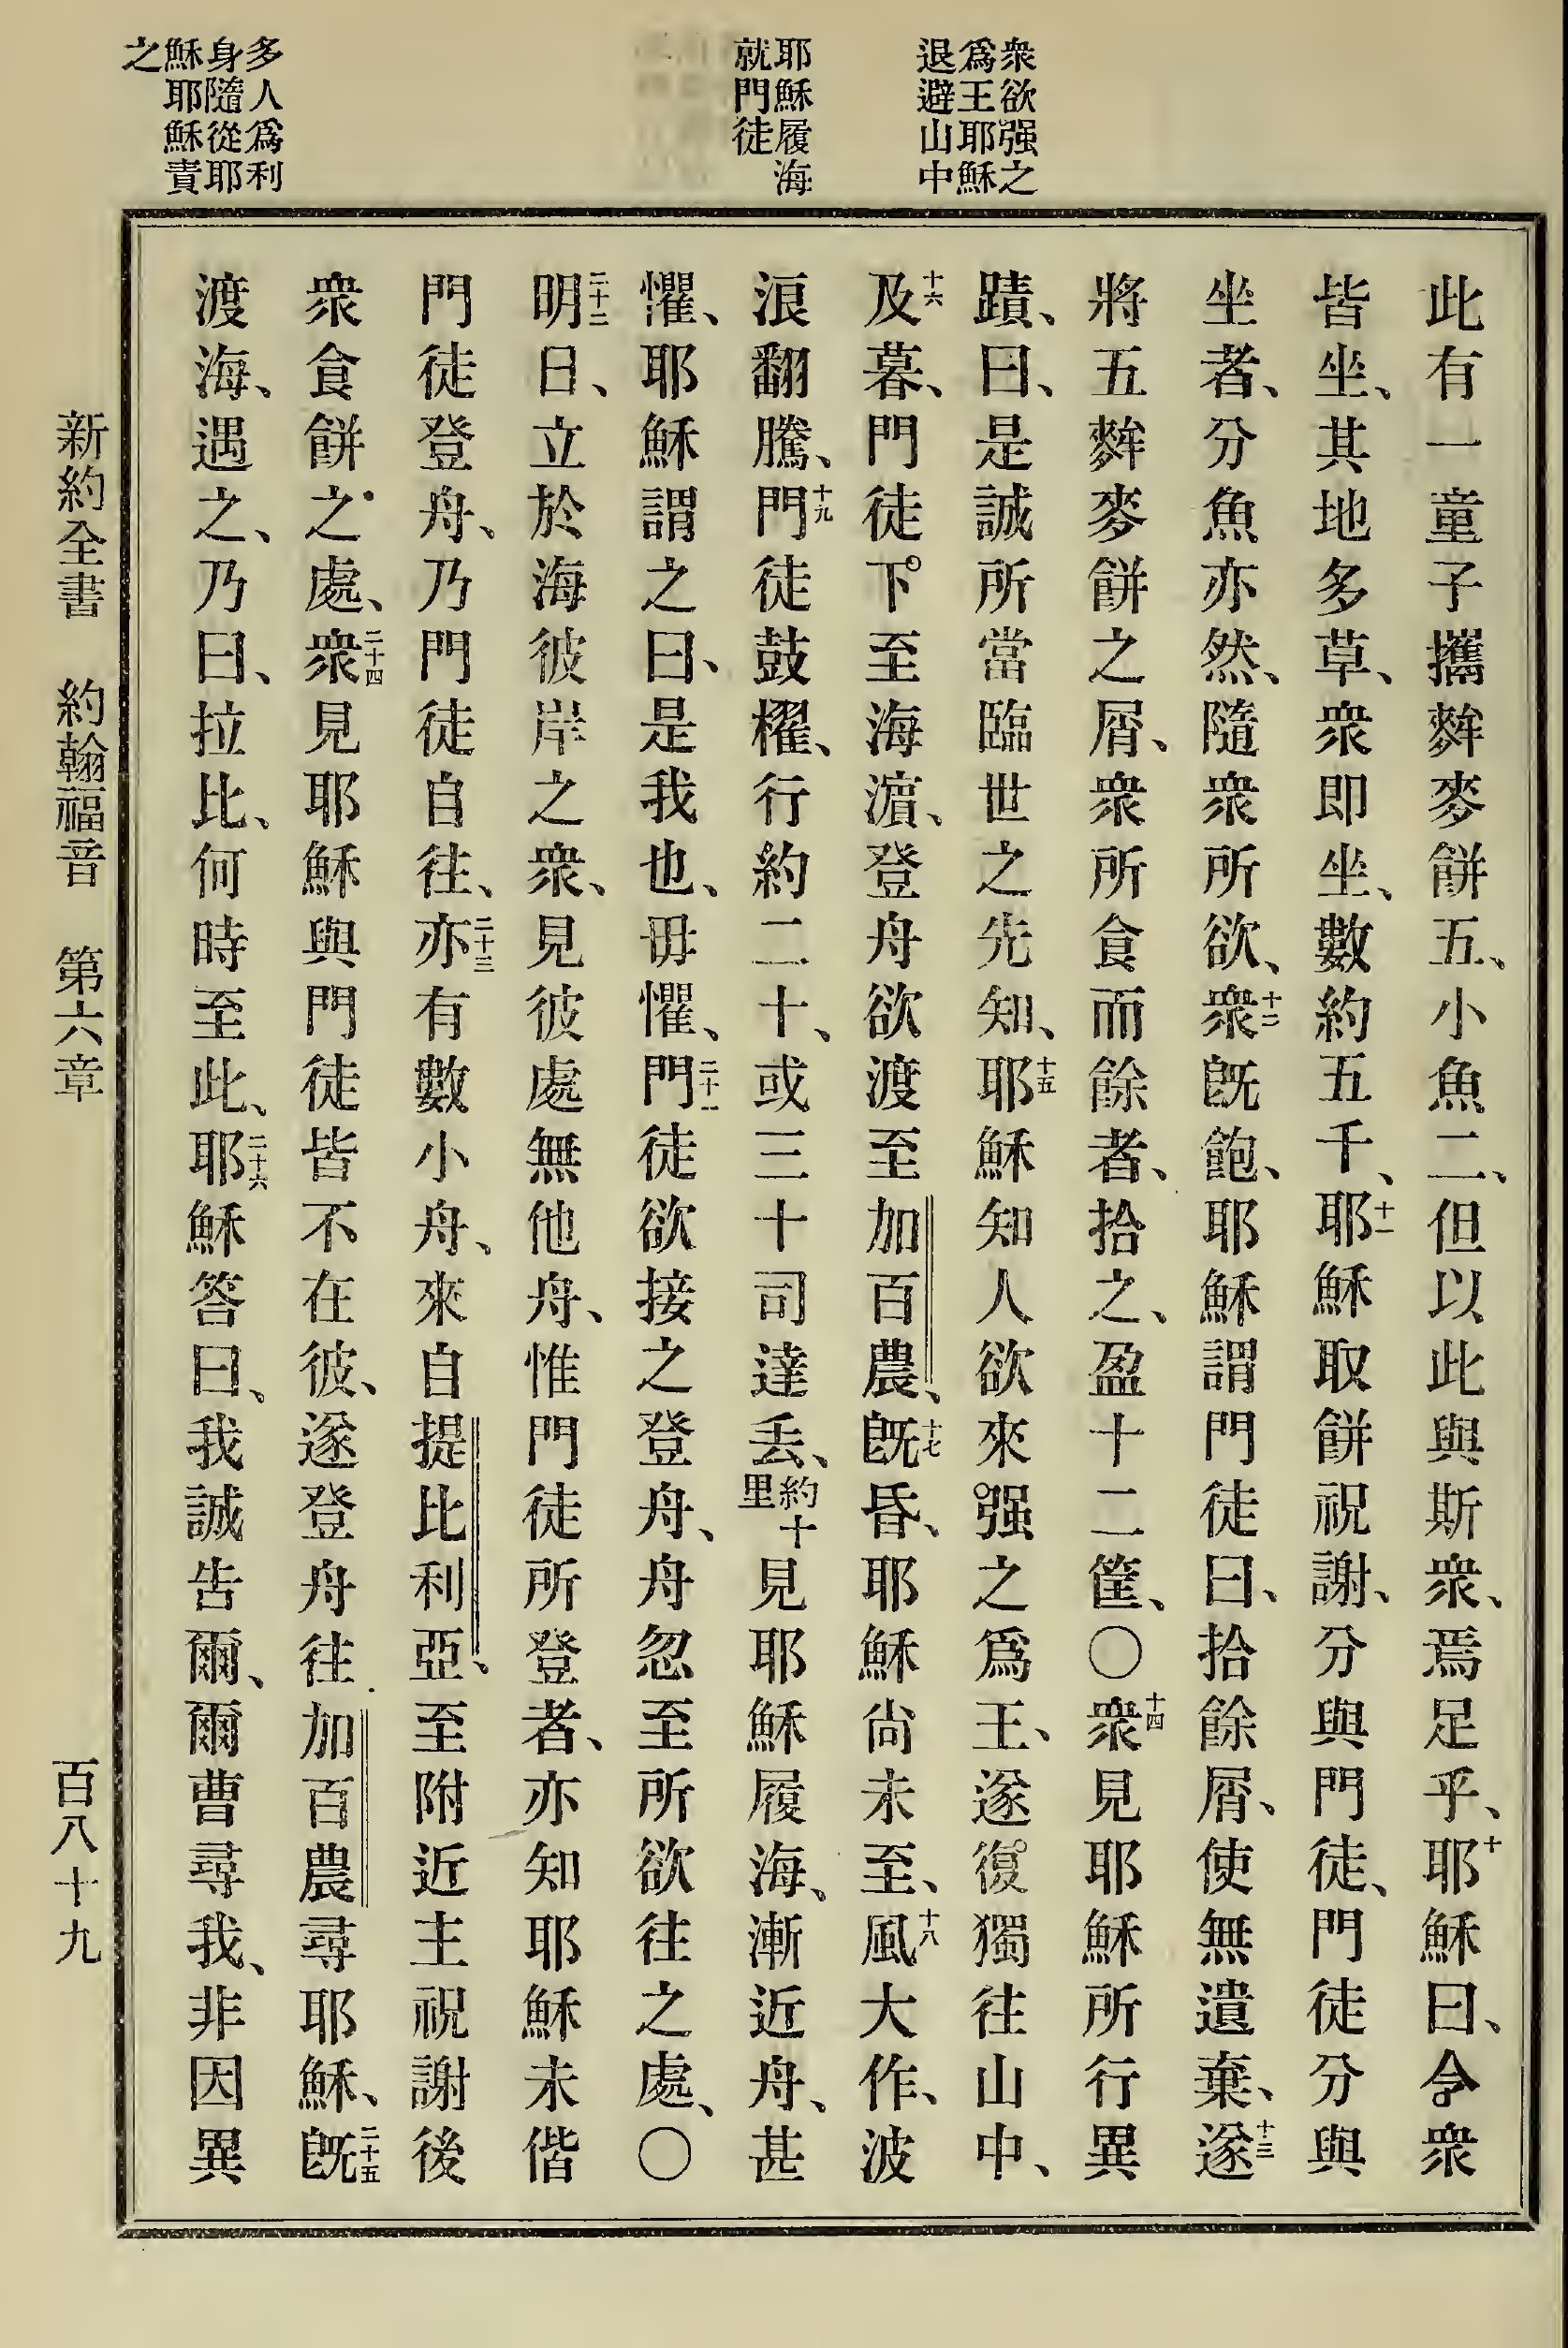 衆欲强之
爲王耶穌
退避山中
耶穌履海
就門徒
多人爲利
身隨從耶
穌耶穌責
之
此有一童子攜麰麥餅五、小魚二、但以此與斯衆、焉足乎、十耶穌曰、令衆
皆坐、其地多草、衆即坐、數約五千、十一耶穌取餅祝謝、分與門徒、門徒分與
坐者、分魚亦然、隨衆所欲、十二衆旣飽、耶穌謂門徒曰、拾餘屑、使無遺棄、十三遂
將五麰麥餅之屑、衆所食而餘者、拾之、盈十二筐、〇十四衆見耶穌所行異
蹟、曰、是誠所當臨世之先知、十五耶穌知人欲來强之爲王、遂復獨往山中、
十六及暮、門徒下至海濵、登舟欲渡至加百農、十七旣昏、耶穌尙未至、十八風大作、波
浪翻騰、十九門徒鼓櫂、行約二十、或三十司達丢、約十里見耶穌履海、漸近舟、甚
懼、耶穌謂之曰、是我也、毋懼、二十一門徒欲接之登舟、舟忽至所欲往之處、〇
二十二明日、立於海彼岸之衆、見彼處無他舟、惟門徒所登者、亦知耶穌未偕
門徒登舟、乃門徒自往、二十三亦有數小舟、來自提比利亞、至附近主祝謝後
衆食餅之處、二十四衆見耶穌與門徒皆不在彼、遂登舟往加百農尋耶穌、二十五旣
渡海、遇之、乃曰、拉比、何時至此、二十六耶穌答曰、我誠告爾、爾曹尋我、非因異
新約全書 約翰福音 第六章 百八十九